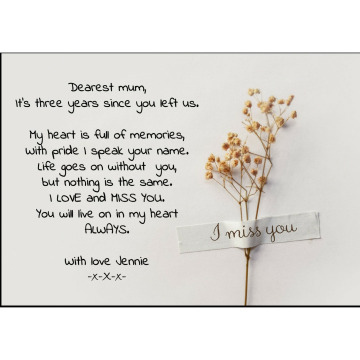 Dearest mum,
It's three years since you left us.
My heart is full of memories,
With pride I speak your name.
Life goes on without you,
but nothing is the same.
I LOVE and MISS YOU.
You will live on in my heart
ALWAYS.
With love Jennie
-x-X-x-
I miss you